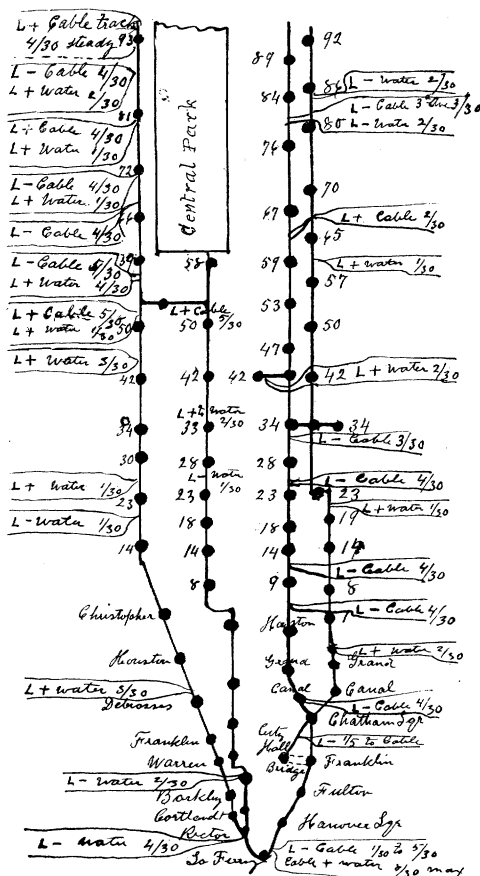 L + Cable track
4/30 steady
93
L - Cable 4/30
L + Water 2/30
81
L + Cable 4/30
L + Water 1/30
72
L - Cable 4/30
L + Water 1/30
L - Cable 4/30
59
L - Cable 5/30
L + Water 4/30
L + Cable 5/30
L + Water 1/30
50
L + Water 3/30
42
34
30
L + Water 1/30
23
L - Water 1/30
14
Christopher
Houston
L + Water 3/30
Debrosses
Franklin
Warren
L - Water 2/30
Barkley
Cortlandt
Rector
L - Water 4/30
So Ferry
Central Park
58
L + Cable 5/30
50
42
L + Water 2/30
33
28
L - Water 1/30
23
18
14
8
89
84
76
67
59
53
47
42
34
28
23
18
14
9
Houston
Grand
Canal
City Hall
Bridge
92
86
L - Water 2/30
L - Cable 3/30
80
L - Water 2/30
70
L + Cable 2/30
65
L + Water 1/30
57
50
42
L + Water 2/30
34
L - Cable 3/30
L - Cable 4/30
23
L + Water 1/30
19
14
L - Cable 4/30
8
L - Cable 4/30
1
L + Water 2/30
Grand
Canal
L - Cable 4/30
Chatham Sqr
L - 1/5 to Cable
Franklin
Fulton
Hanover Sqr
L - Cable 1/30 to 5/30
Cable + water 3/30 max